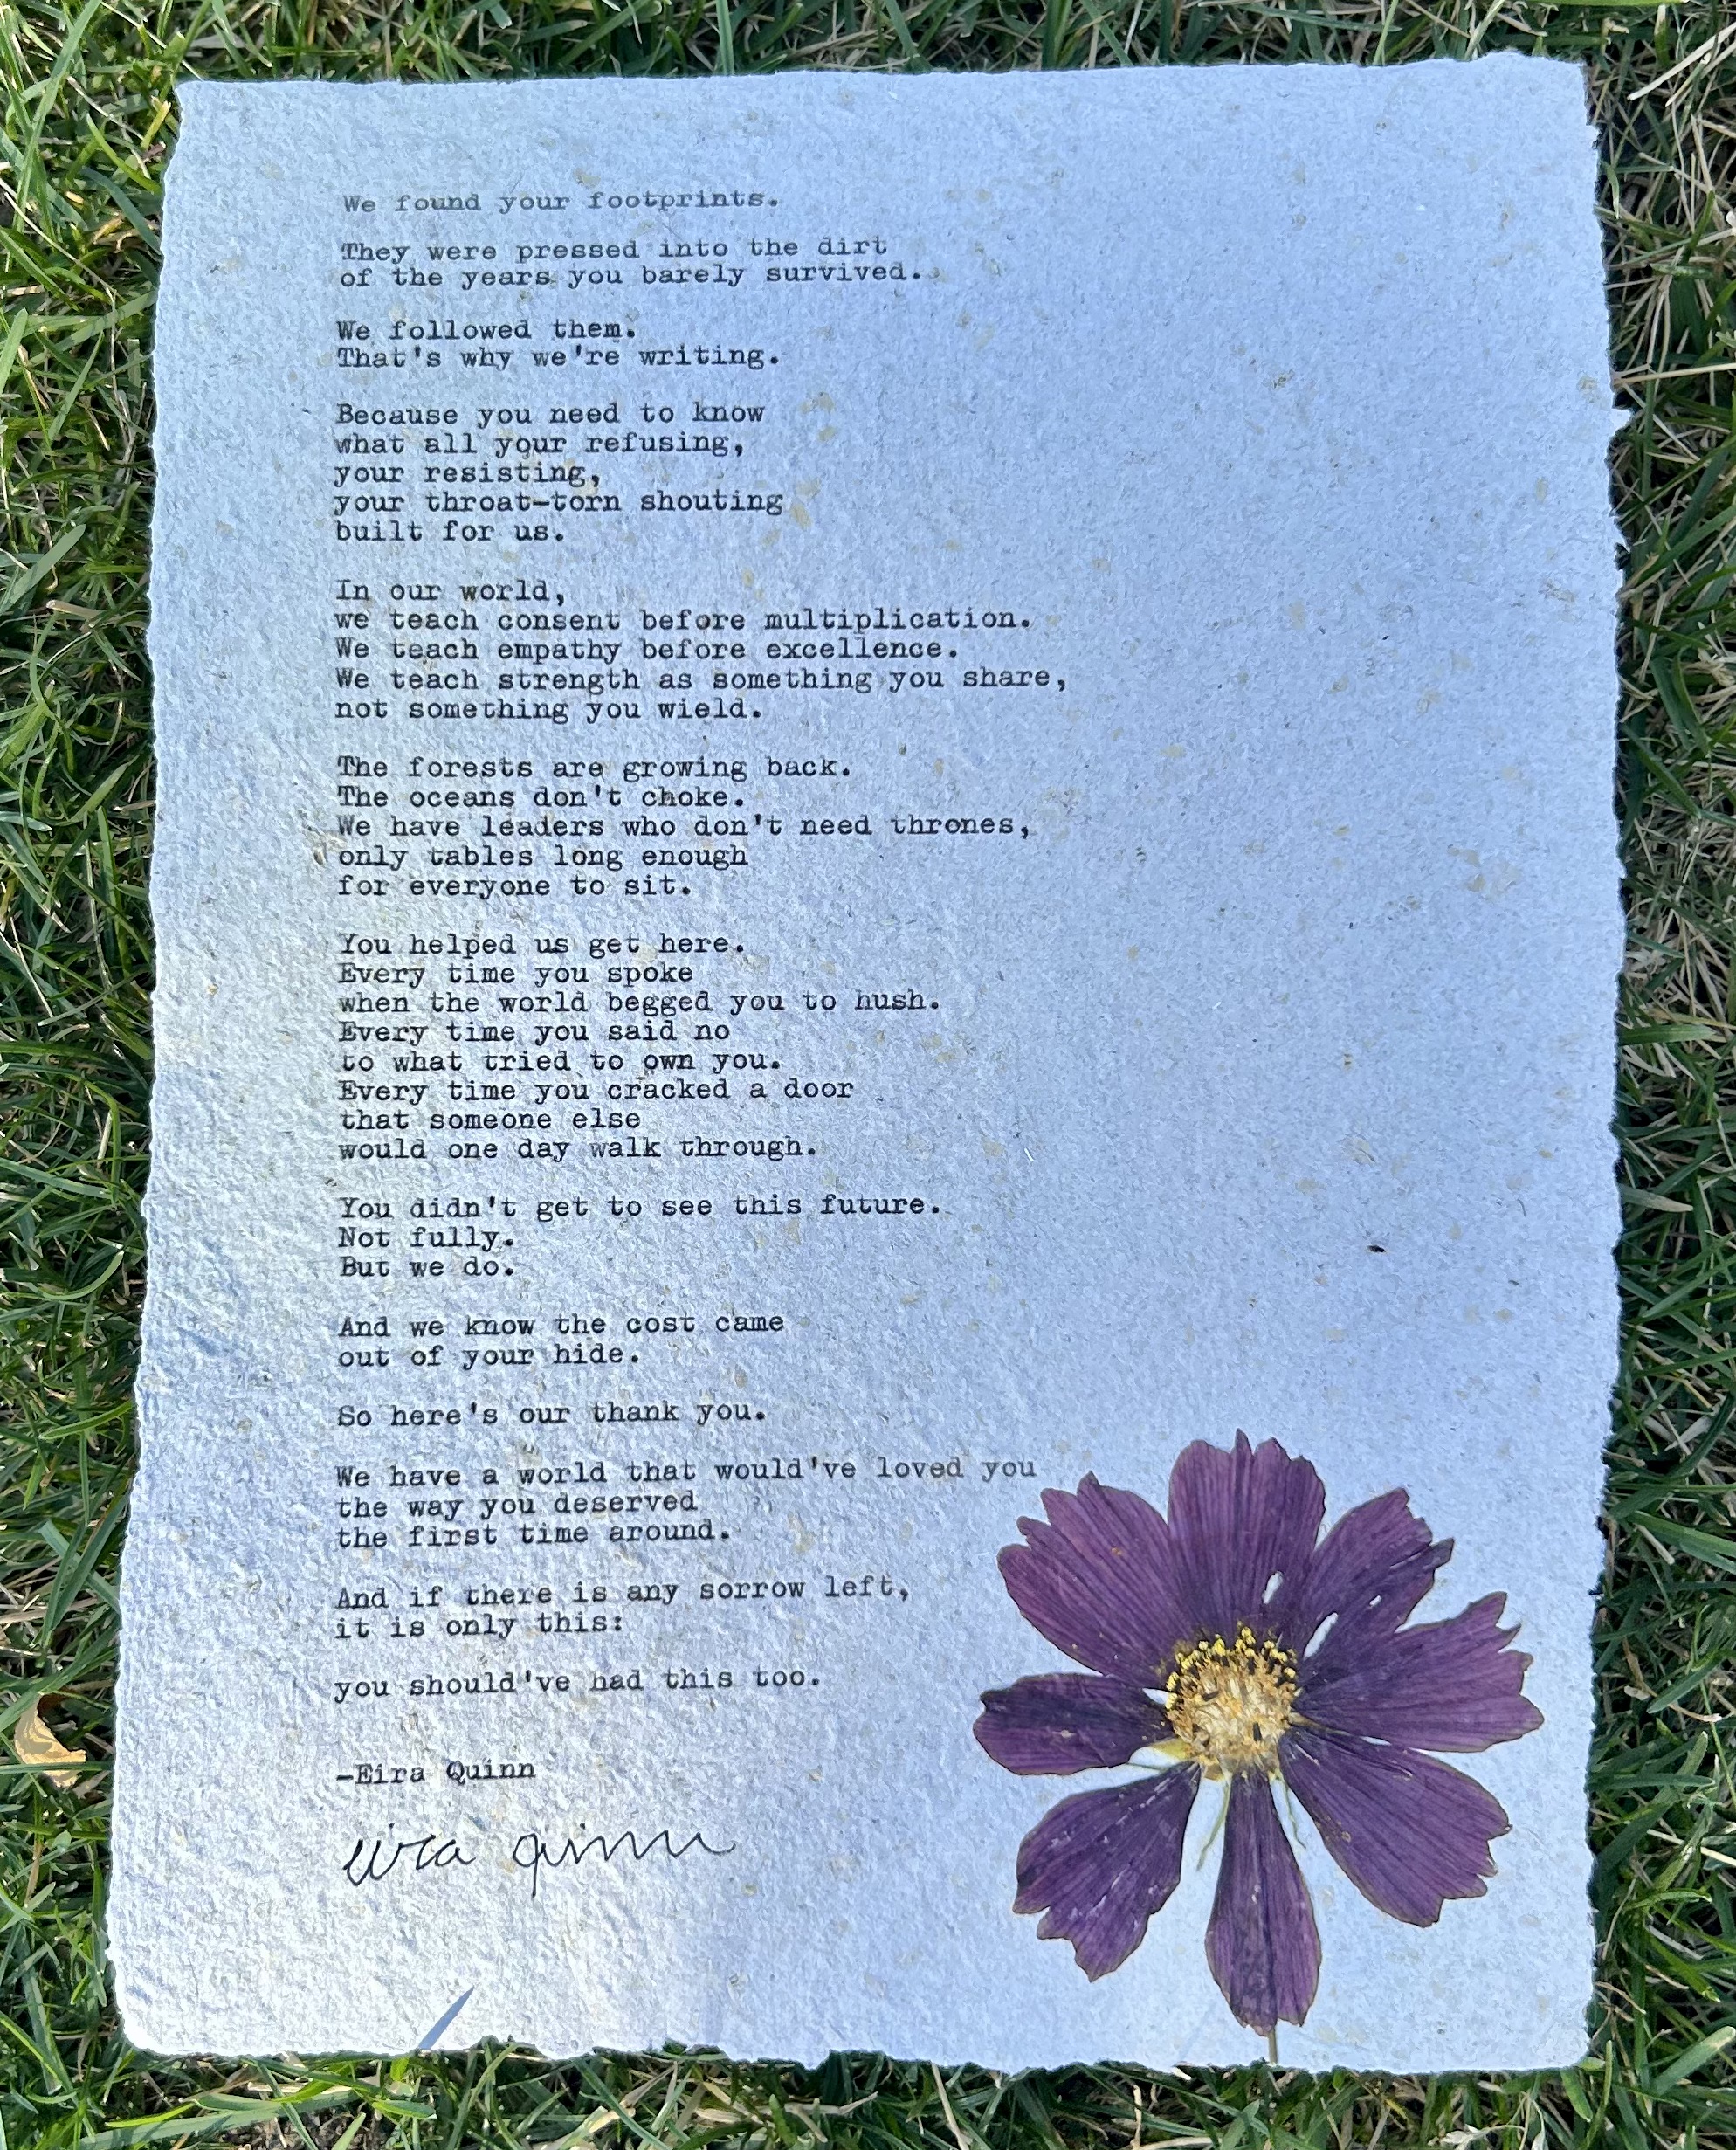 We found your footprints.
They were pressed into the dirt
of the years you barely survived.
We followed them.
That's why we're writing.
Because you need to know
what all your refusing,
your resisting,
your throat-torn shouting
built for us.
In our world,
we teach consent before multiplication.
We teach empathy before excellence.
We teach strength as something you share,
not something you wield.
The forests are growing back.
The oceans don't choke.
We have leaders who don't need thrones,
only tables long enough
for everyone to sit.
You helped us get here.
Every time you spoke
when the world begged you to hush.
Every time you said no
to what tried to own you.
Every time you cracked a door
that someone else
would one day walk through.
You didn't get to see this future.
Not fully.
But we do.
And we know the cost came
out of your hide.
So here's our thank you.
We have a world that would've loved you
the way you deserved
the first time around.
And if there is any sorrow left,
it is only this:
you should've had this too.
-Eira Quinn
eira quinn